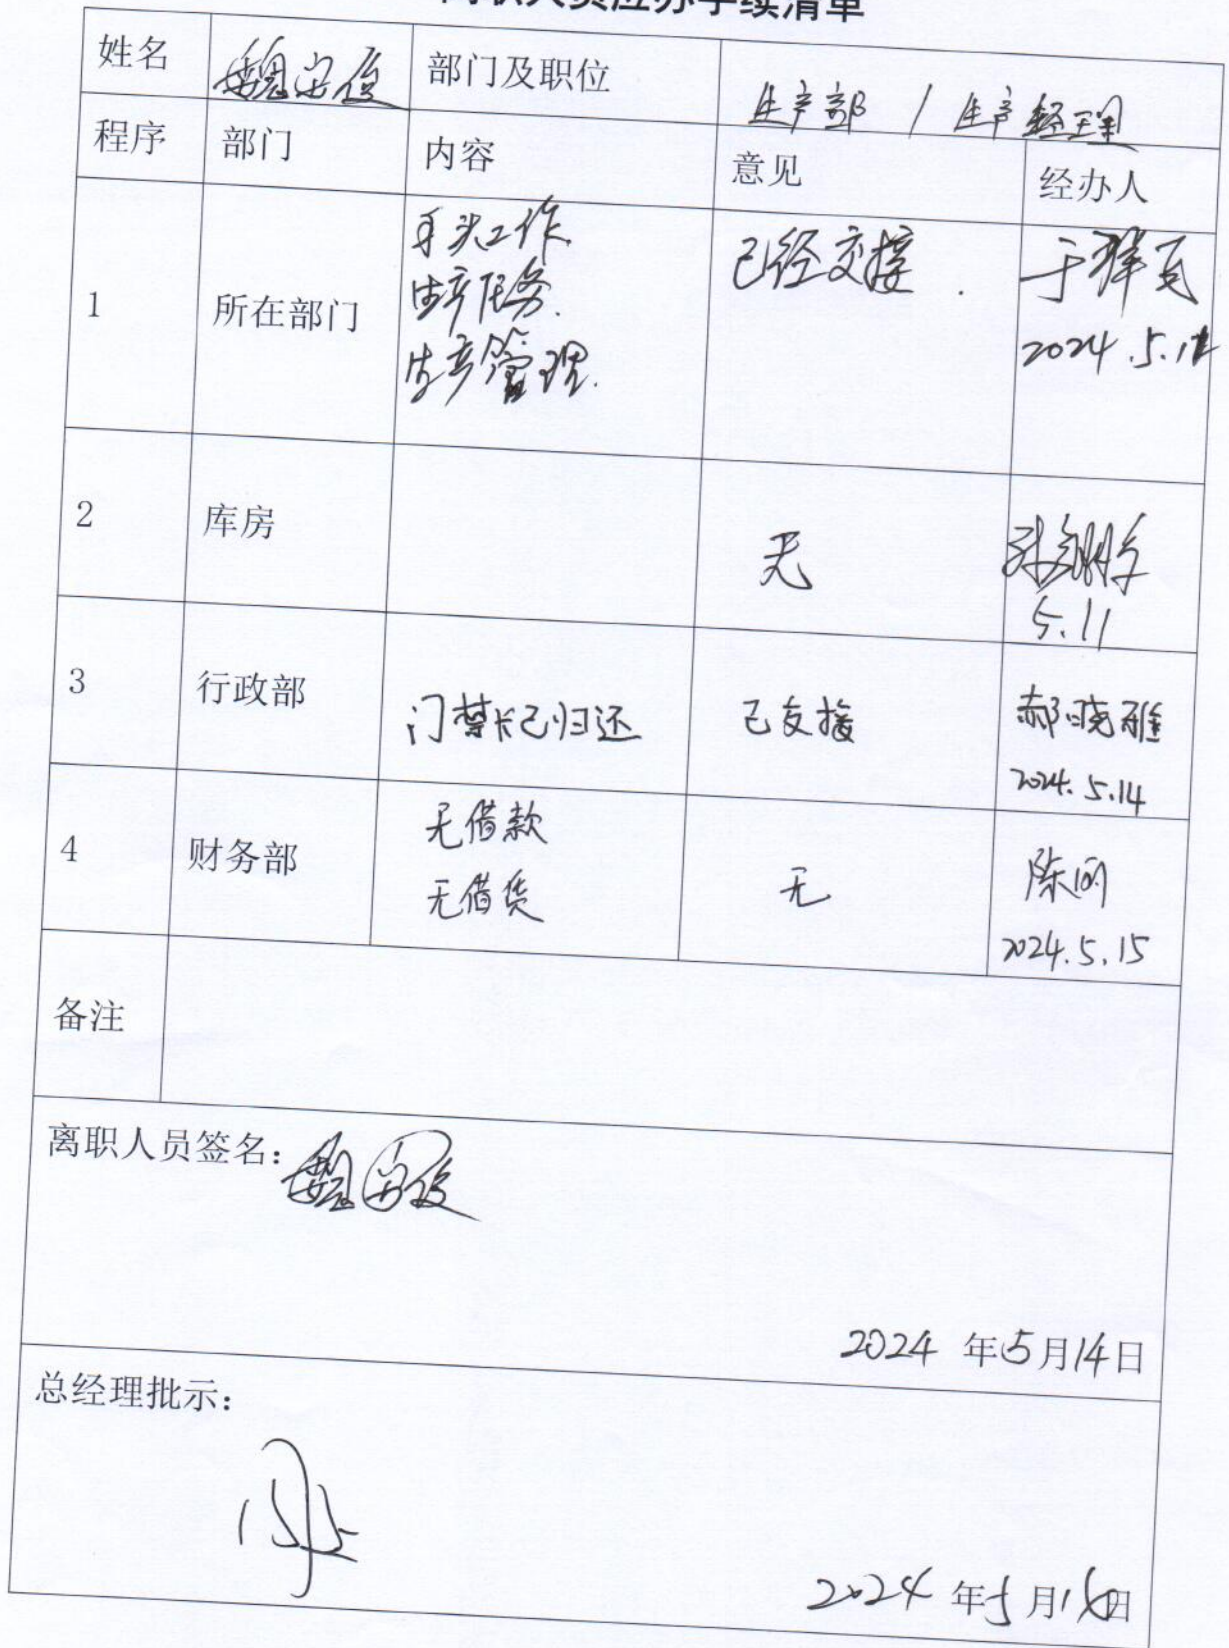 离职人员应办手续清单
姓名 魏安俊 部门及职位 生产部 / 生产经理
程序 部门 内容 意见 经办人
1 所在部门 手头工作 已经交接.
生产任务.
生产管理.
2024.5.
2 库房 无
5.11
3 行政部 门禁卡已归还 已交接 郝晓雅
2024.5.14
4 财务部 无借款
无借货 无 陈
2024.5.15
备注
离职人员签名: 魏安俊
2024 年5月14日
总经理批示:
2024 年5月 日